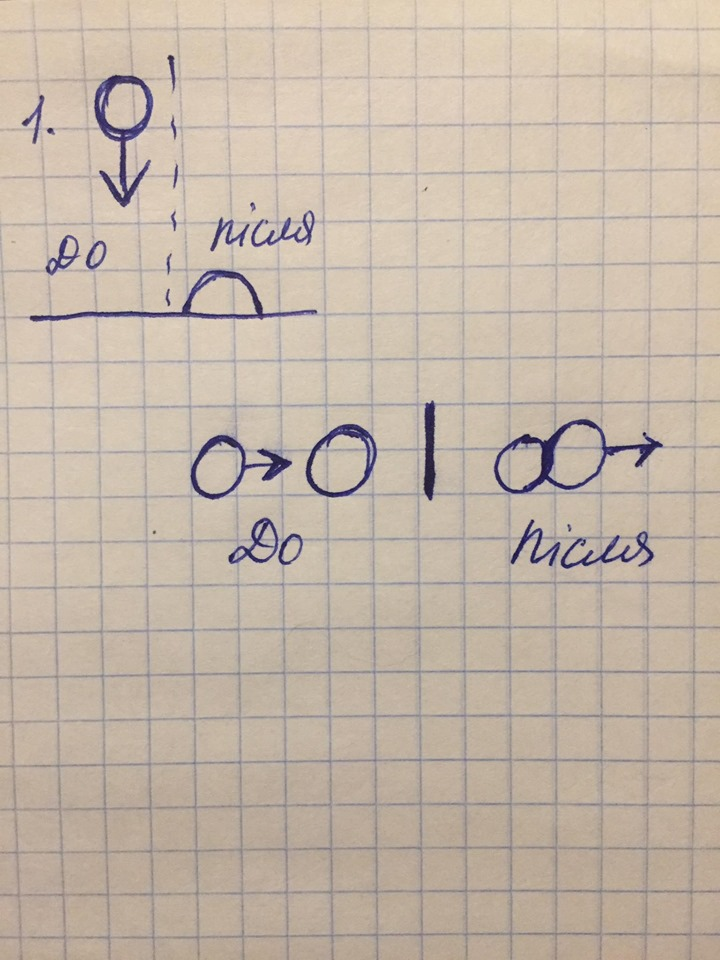 1.
До
після
До
після